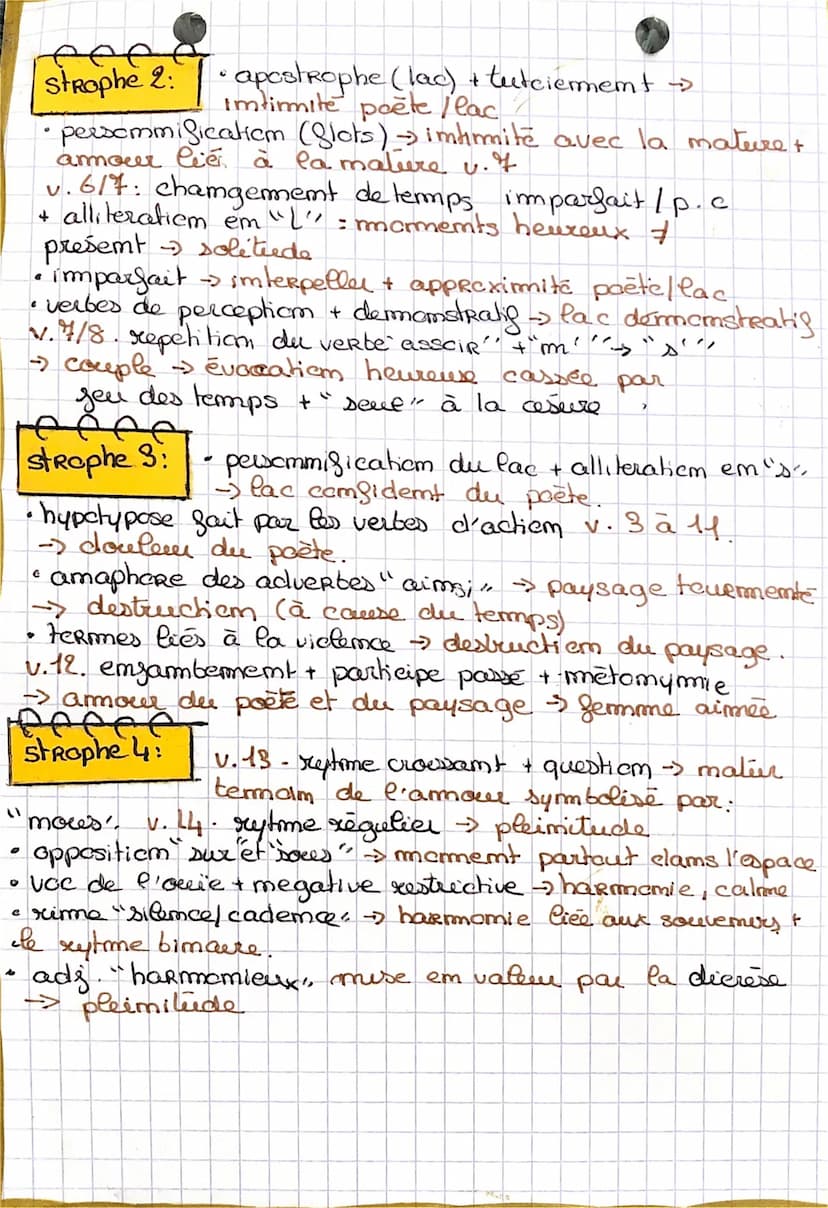 strophe 2:
• apostrophe (lac) + tutoiement →
intimité poète / lac
• personnification (flots) → intimité avec la nature +
amour lié à la nature v.7
v.6/7: changement de temps imparfait / p.c
+ alliteration en "L" = moments heureux ≠
présent → solitude
• imparfait → interpeller + approximité poète/lac
• verbes de perception + démonstratif → lac démonstratif
v.7/8. repetition du verbe asseoir" + "m'" → "s'"
→ couple → évocation heureuse cassée par
jeu des temps + "seul" à la césure
strophe 3:
• personnification du lac + alliteration en "s"
→ lac confident du poète.
• hypotypose fait par les verbes d'action v. 9 à 11.
→ douleur du poète.
• anaphore des adverbes "ainsi" → paysage tourmenté
→ destruction (à cause du temps)
• termes liés à la violence → destruction du paysage.
v.12. enjambement + participe passé + métonymie
→ amour du poète et du paysage → femme aimée
strophe 4:
v.13 - rytme croissant + question →
de l'amour symbolisé par:
"nous". v.14. rytme régulier → pleinitude
• opposition "sur" et "sous" → moment partout dans l'espace
• voc de l'ouïe + negative restrictive → harmonie, calme
• rime "silence/cadence" → harmonie liée aux souvenirs +
le rytme binaire.
• adj. "harmonieux" mise en valeur par la diérèse
→ pleinitude